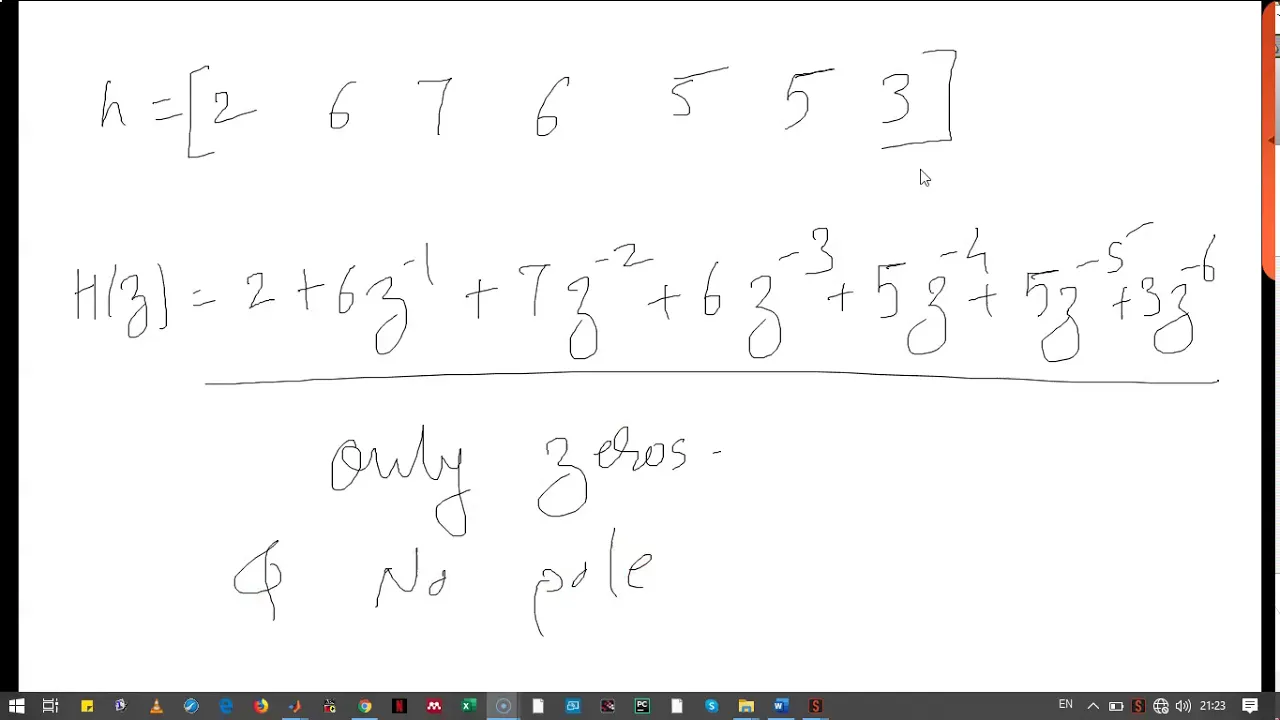 h = [2 6 7 6 5 5 3]
H(z) = 2 + 6z⁻¹ + 7z⁻² + 6z⁻³ + 5z⁻⁴ + 5z⁻⁵ + 3z⁻⁶
only zeros.
No pole
EN 21:23